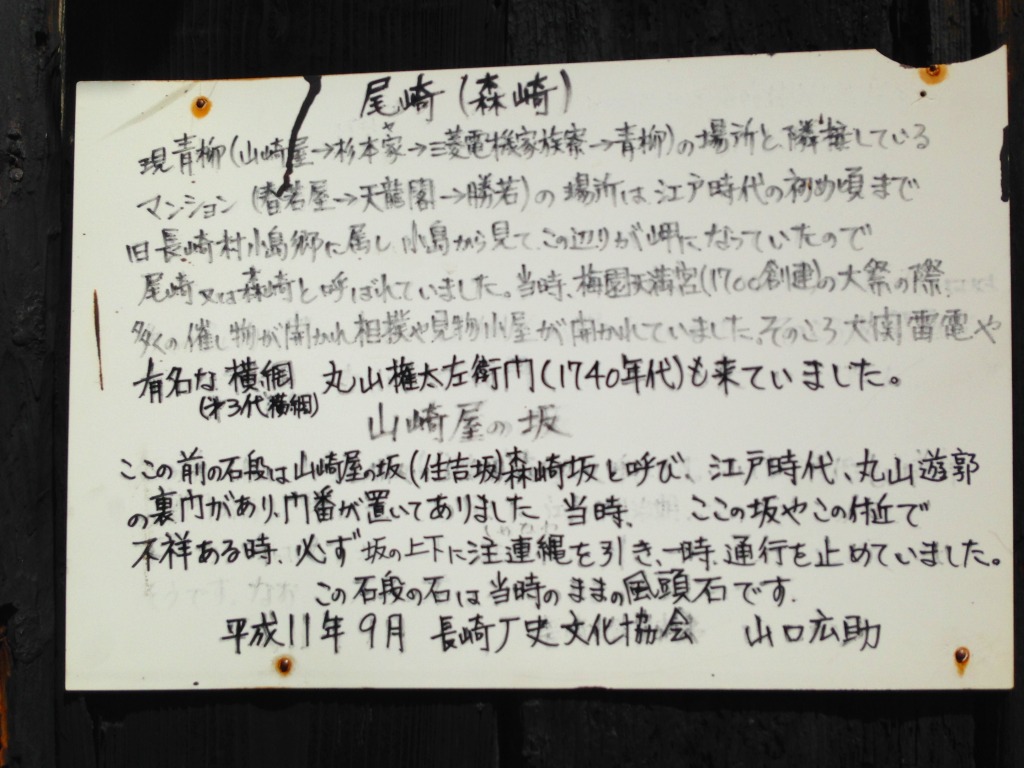 尾崎(森崎)
現青柳(山崎屋→杉本家→三菱電機家族寮→青柳)の場所と、隣接している
マンション(春若屋→天龍閣→勝若)の場所は、江戸時代の初め頃まで
旧長崎村小島郷に属し、小島から見て、この辺りが岬になっていたので
尾崎又は森崎と呼ばれていました。当時、梅園天満宮(1700創建)の大祭の際、
多くの催し物が開かれ相撲や見物小屋が開かれていました。そのころ大関雷電や
有名な横綱 丸山権太左衛門(1740年代)も来ていました。
(第3代横綱)
山崎屋の坂
ここの前の石段は山崎屋の坂(住吉坂)森崎坂と呼び、江戸時代、丸山遊郭
の裏門があり、門番が置いてありました 当時、 ここの坂やこの付近で
不祥ある時、必ず坂の上下に注連縄を引き、一時、通行を止めていました。
この石段の石は当時のままの風頭石です.
平成11年9月 長崎丁史文化協会 山口広助